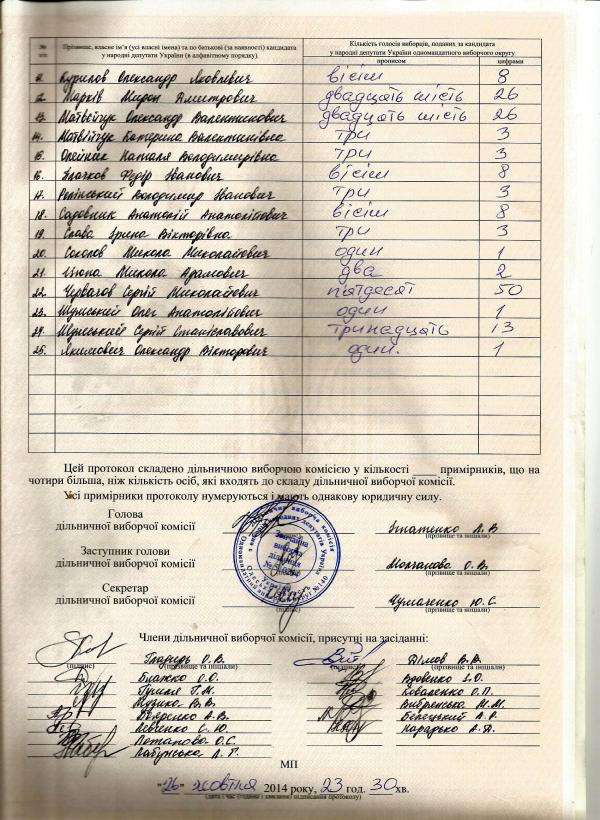 № з/п
Прізвище, власне ім'я (усі власні імена) та по батькові (за наявності) кандидата у народні депутати України (в алфавітному порядку)
Кількість голосів виборців, поданих за кандидата
у народні депутати України одномандатного виборчого округу
прописом цифрами
11. Курилов Олександр Яковлевич вісім 8
12. Марків Мирон Дмитрович двадцять шість 26
13. Матвейчук Олександр Валентинович двадцять шість 26
14. Матвійчук Катерина Валентинівна три 3
15. Олейник Наталя Володимирівна три 3
16. Федір Іванович вісім 8
17. Володимир Іванович три 3
18. Садовник Анатолій Анатолійович вісім 8
19. Слава Ірина Вікторівна три 3
20. Микола Миколайович один 1
21. Микола Адамович два 2
22. Червачов Сергій Миколайович пятдесят 50
23. Шумський Олег Анатолійович один 1
24. Шумський Сергій Станіславович тринадцать 13
25. Якимович Олександр Вікторович один. 1
Цей протокол складено дільничною виборчою комісією у кількості ____ примірників, що на
чотири більша, ніж кількість осіб, які входять до складу дільничної виборчої комісії.
Усі примірники протоколу нумеруються і мають однакову юридичну силу.
Голова
дільничної виборчої комісії Ігнатенко Л.В
(прізвище та ініціали)
Заступник голови
дільничної виборчої комісії Молчанова О.В.
(прізвище та ініціали)
Секретар
дільничної виборчої комісії Чумаченко Ю.С.
(підпис) (прізвище та ініціали)
Члени дільничної виборчої комісії, присутні на засіданні:
О.В. Дімов В.В
(підпис) (прізвище та ініціали) (підпис) (прізвище та ініціали)
Блажко О.О. Вдовенко
Г.М. Коваленко О.П.
Музика В.В. М.М.
А.В. Белецький А.Р.
Левченко С.Ю
Потапова О.С.
МП
"26" жовтня 2014 року, 23 год. 30 хв.
(дата і час (година і хвилини) підписання протоколу)